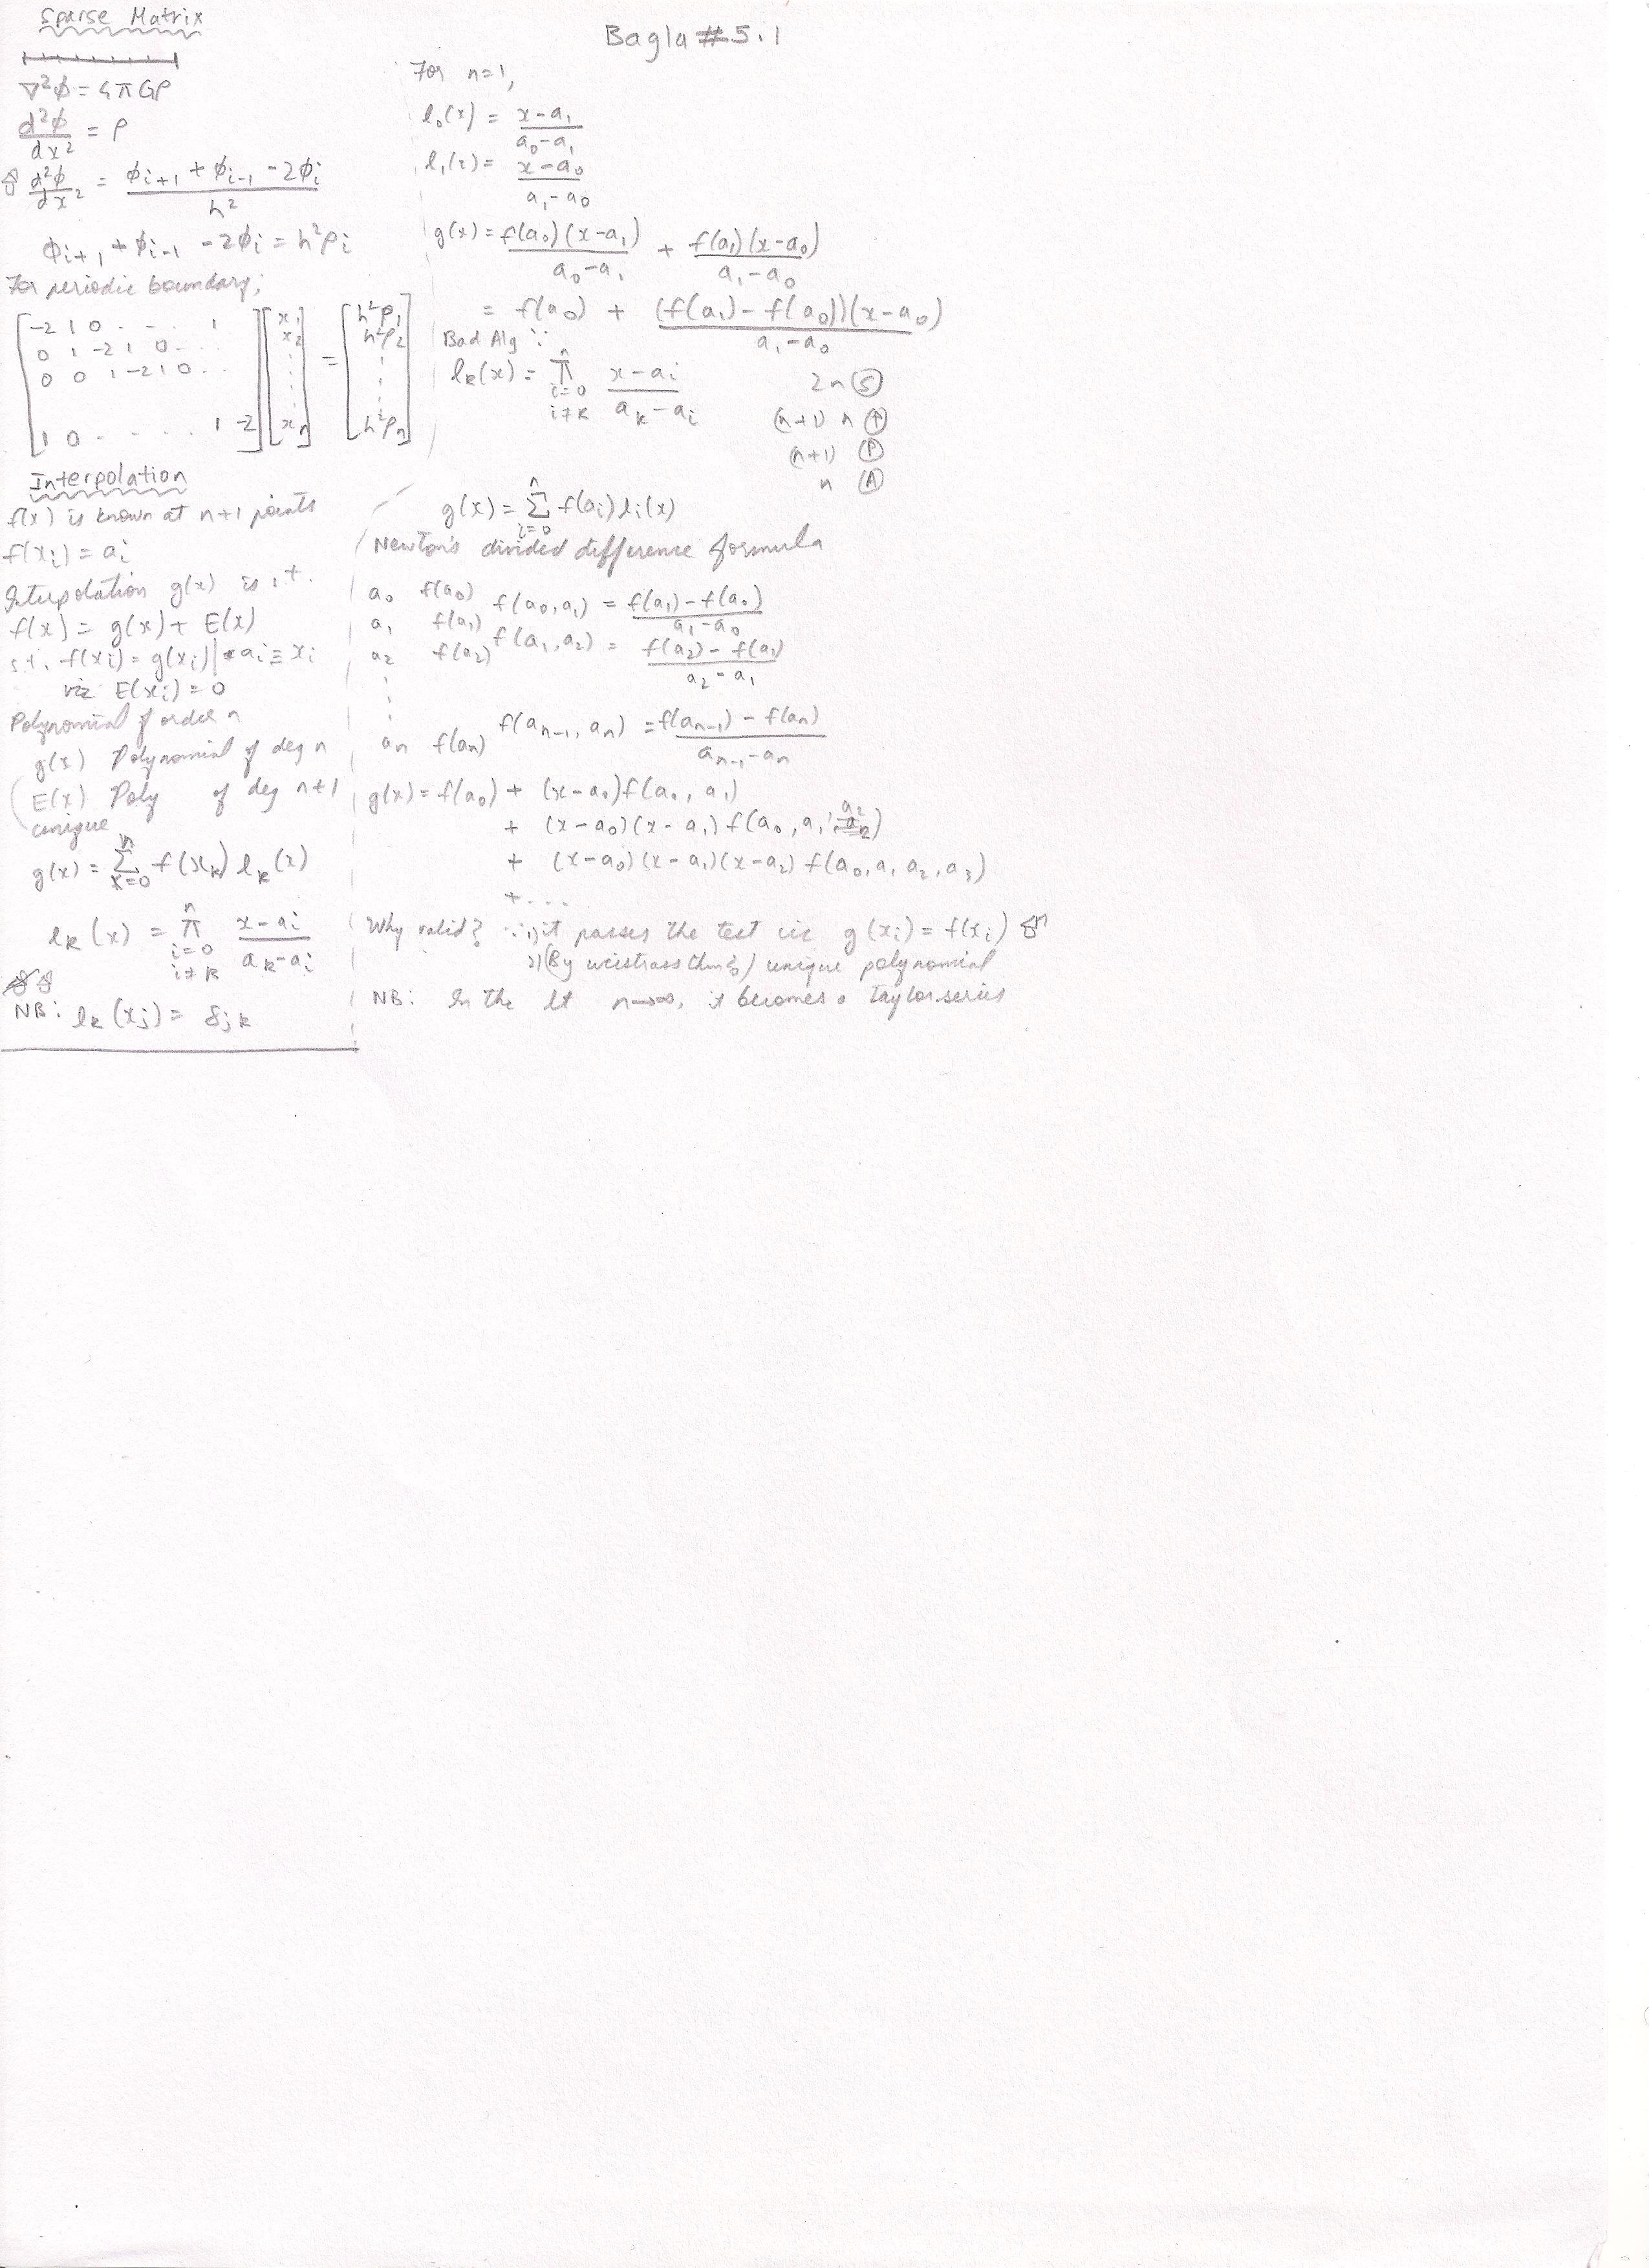 Bagla #5.1
Sparse Matrix
∇²ϕ = 4πGρ
d²ϕ/dx² = ρ
d²ϕ/dx² = (ϕ_{i+1} + ϕ_{i-1} - 2ϕ_i)/h²
ϕ_{i+1} + ϕ_{i-1} - 2ϕ_i = h²ρ_i
For periodic boundary;
[-2 1 0 . - . . 1] [x_1] = [h²ρ_1]
[0 1 -2 1 0 - . .] [x_2] [h²ρ_2]
[0 0 1 -2 1 0 . .] [⋮] [⋮]
[1 0 - - . . 1 -2] [x_n] [h²ρ_n]
Interpolation
f(x) is known at n+1 points
f(x_i) = a_i
Interpolation g(x) is s.t.
f(x) = g(x) + E(x)
s.t. f(x_i) = g(x_i) | a_i ≡ x_i
viz E(x_i) = 0
Polynomial of order n
g(x) Polynomial of deg n
E(x) Poly of deg n+1
unique
g(x) = Σ_{k=0}^{n} f(x_k) l_k(x)
l_k(x) = π_{i=0, i≠k}^{n} (x-a_i)/(a_k-a_i)
NB: l_k(x_j) = δ_{jk}
For n=1,
l_0(x) = (x-a_1)/(a_0-a_1)
l_1(x) = (x-a_0)/(a_1-a_0)
g(x) = f(a_0)(x-a_1)/(a_0-a_1) + f(a_1)(x-a_0)/(a_1-a_0)
= f(a_0) + (f(a_1) - f(a_0))(x-a_0)/(a_1-a_0)
Bad Alg ∵
l_k(x) = π_{i=0, i≠k}^{n} (x-a_i)/(a_k-a_i) 2n Ⓢ
(n+1) n
(n+1) Ⓟ
n Ⓐ
g(x) = Σ_{i=0}^{n} f(a_i) l_i(x)
Newton's divided difference formula
a_0 f(a_0) f(a_0,a_1) = (f(a_1) - f(a_0))/(a_1-a_0)
a_1 f(a_1)
f(a_1,a_2) = (f(a_2) - f(a_1))/(a_2-a_1)
a_2 f(a_2)
⋮
a_n f(a_n) f(a_{n-1}, a_n) = (f(a_{n-1}) - f(a_n))/(a_{n-1}-a_n)
g(x) = f(a_0) + (x-a_0)f(a_0, a_1)
+ (x-a_0)(x-a_1) f(a_0, a_1, a_2)
+ (x-a_0)(x-a_1)(x-a_2) f(a_0, a_1 a_2, a_3)
+ . . . .
Why valid? ∵ 1) it passes the test viz g(x_i) = f(x_i)
2) (By weistrass thm) unique polynomial
NB: In the lt n→∞, it becomes a Taylor series